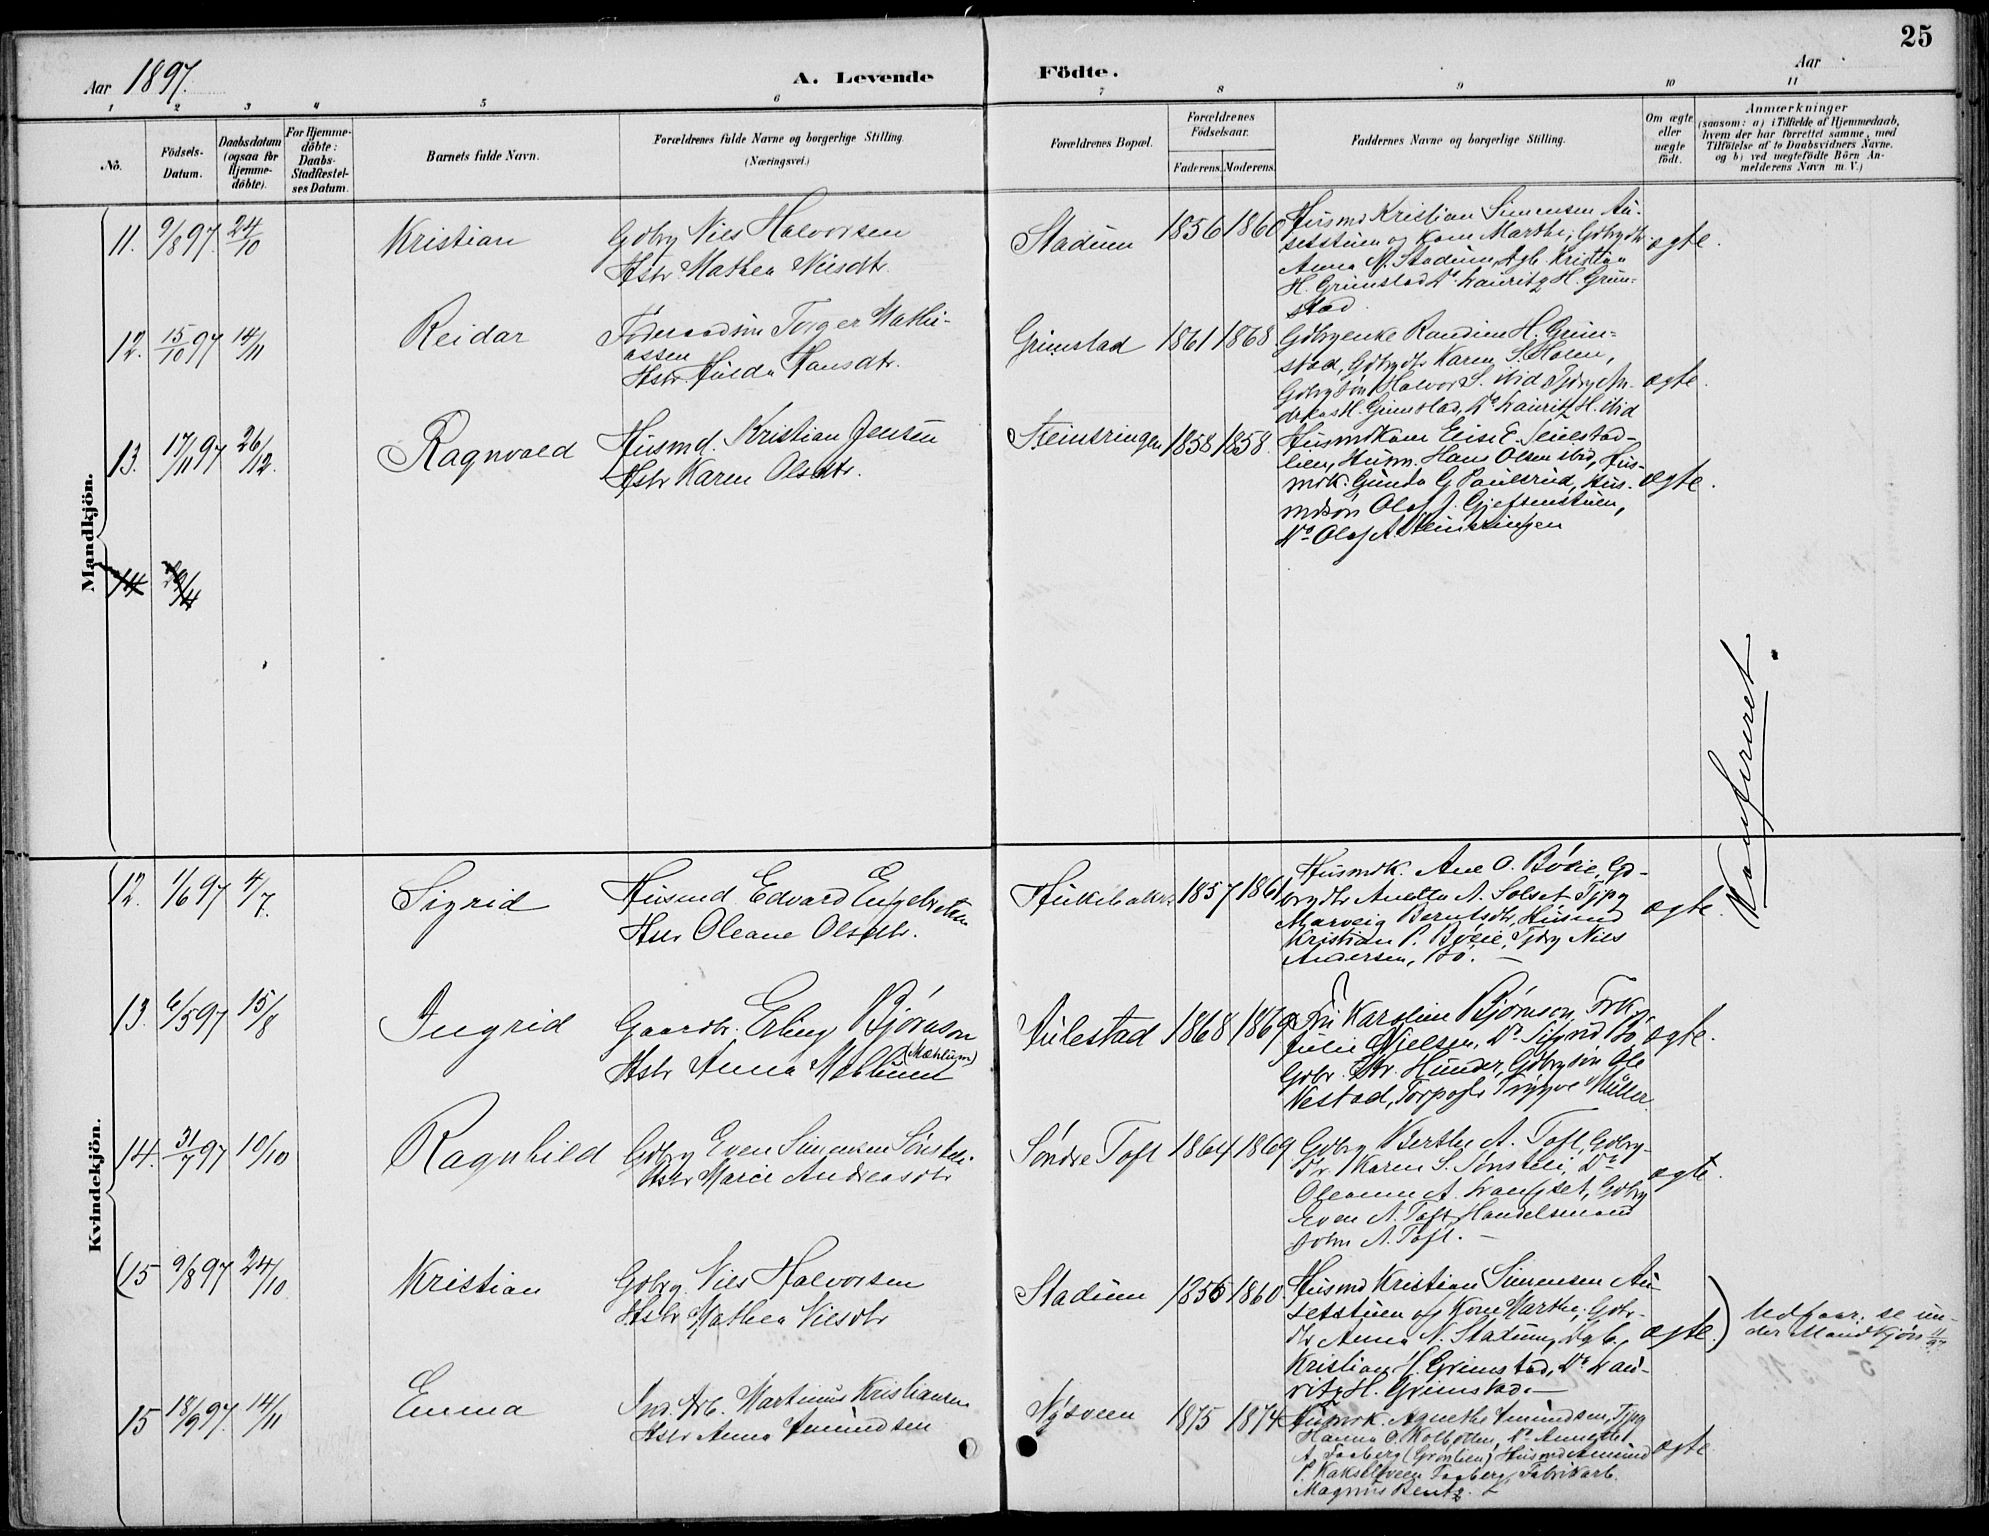 25
Aar 1897.
A. Levende
Födte.
Aar
1 2 3 4 5 6 7 8 9 10 11
No.
Födsels-Datum.
Daabsdatum (ogsaa for Hjemme-döbte).
For Hjemme-döbte: Daabs-Stadfæstel-ses Datum.
Barnets fulde Navn.
Forældrenes fulde Navne og borgerlige Stilling. (Næringsvei.)
Forældrenes Bopæl.
Forældrenes Födselsaar.
Faderens. Moderens.
Faddernes Navne og borgerlige Stilling.
Om ægte eller uægte födt.
Anmærkninger
(saasom: a) i Tilfælde af Hjemmedaab, hvem der har forrettet samme, med Tilföielse af to Daabsvidners Navne. og b) ved uægtefödte Börn An-melderens Navn m. V.)
Mandkjön.
11. 9/8 97. 24/10
Kristian
Gdbrg Nils Halvorsen
Hstr Mathea Nilsdtr.
Stadum 1856 1860
Husmd Kristian Simensen Au-
setstuen og Kone Marthe, Gdbrgdtr
Anna N. Stadum, Ugk. Kristian
H. Grimstad, Do Lauritz H. Grim-
stad
ægte.
12. 15/10 97 14/11
Reidar
Føderaadsm Torger Mathi-
assen
Hstr. Hulda Hansdtr.
Grimstad 1861 1868.
Gdbrgenke Randine H. Grim-
stad, Gdbrgdtr Karen S. Holen,
Gdbrgsøn Halvor S. ibid, Gdbrg An-
dreas H. Grimstad, Do Lauritz H. ibid
ægte.
13. 17/11 97 26/12.
Ragnvald
Husmd. Kristian Jensen
Hstr Karen Olsdtr.
Steinsringen 1858 1858.
Husmdkone Elise E. Seielstad-
lien, Husm. Hans Olsen ibid, Hus-
mdk. Gunda G Paulsrud, Hus-
mdsøn Olaf J. Gjeftenstuen,
Do Olaf A Steinsringen
ægte.
14.
Konfereret.
Kvindekjön.
12. 1/6 97 4/7.
Sigrid
Husmd. Edvard Engebretsen
Hstr Oleane Olsdtr.
1857 1861
Husmdk. Ane O. Bøeie, Gd-
brgdtr Anette A. Solset, Tjpg
Marveig Berntsdtr, Husmd
Kristian P. Bøeie, Tjdrg Nils
Andersen, Bø. —
ægte.
13. 6/5 97 15/8
Ingrid
Gaardbr. Erling Bjørnson
(Mæhlum)
Hstr Anna Mæhlum
Aulestad 1868 1869
Fru Karoline Bjørnson, Frk.
Julie Nielsen, Do Sigrid Bø,
Gdbr. Chr. Hunder, Gdbrgsøn Ole
Nestad, Forpagtr Trygve Müller.
ægte.
14. 31/7 97 10/10
Ragnhild
Gdbrg Even Simensen Sønsteli.
Hstr Marie Andreasdtr
Søndre Toft 1864 1869.
Gdbrg Berthe A. Toft, Gdbrg-
dtr. Karen S. Sønsteli, Do
Oleanne A. Langset, Gdbrg
Even A. Toft, Handelsmand
John A. Toft. —
ægte.
(15 9/8 97 24/10
Kristian
Gdbrg. Nils Halvorsen
Hstr Mathea Nilsdtr
Stadum 1856 1860
Husmd Kristian Simensen Au-
setstuen og Kone Marthe, Gdbr-
dtr Anna N. Stadum, Ugk.,
Kristian H. Grimstad, Do Lau-
ritz H. Grimstad. —
ægte.)
Udgaar, se un-
der Mandkjøn 11/97.
15 18/9 97. 14/11
Emma
Ind. Arb. Martinus Kristiansen
Hstr Anna Amundsen
Nysveen 1875 1874.
Husmdk. Agnethe Amundsen, Tjpg
Hanna O. Kolbotten, Do Annette
A. Faaberg (Grønlien), Husmd Amund
P. Kakselsveen Faaberg, Fabrikarb.
Magnus Bentz.
ægte